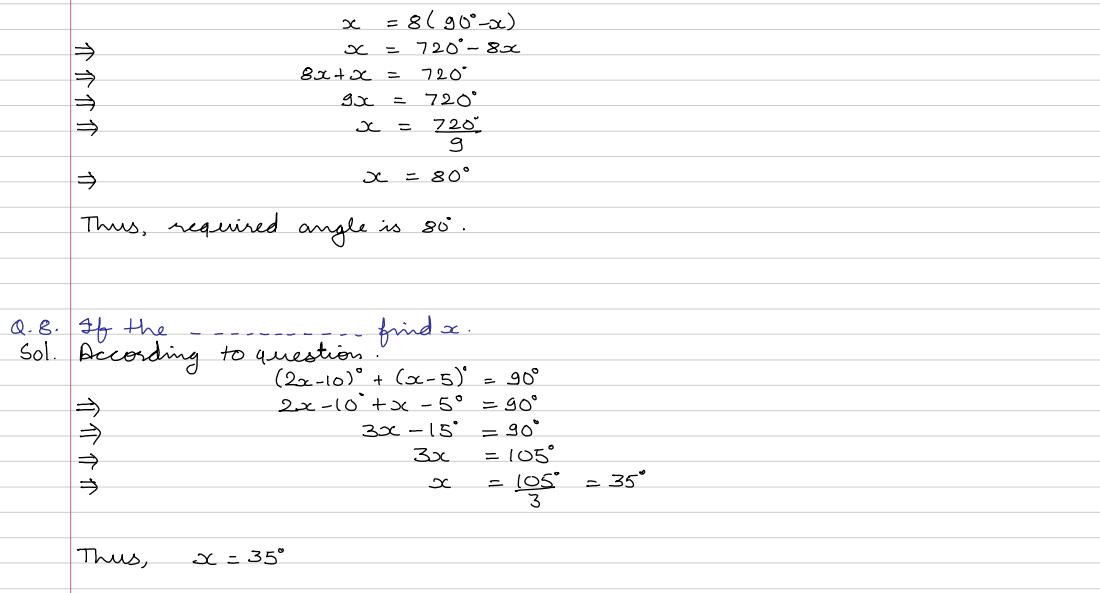 x = 8(90°-x)
⇒ x = 720° - 8x
⇒ 8x+x = 720°
⇒ 9x = 720°
⇒ x = 720°/9
⇒ x = 80°
Thus, required angle is 80°.
Q.8. If the ------------ find x.
Sol. According to question.
(2x-10)° + (x-5)° = 90°
⇒ 2x-10° + x - 5° = 90°
⇒ 3x - 15° = 90°
⇒ 3x = 105°
⇒ x = 105°/3 = 35°
Thus, x = 35°